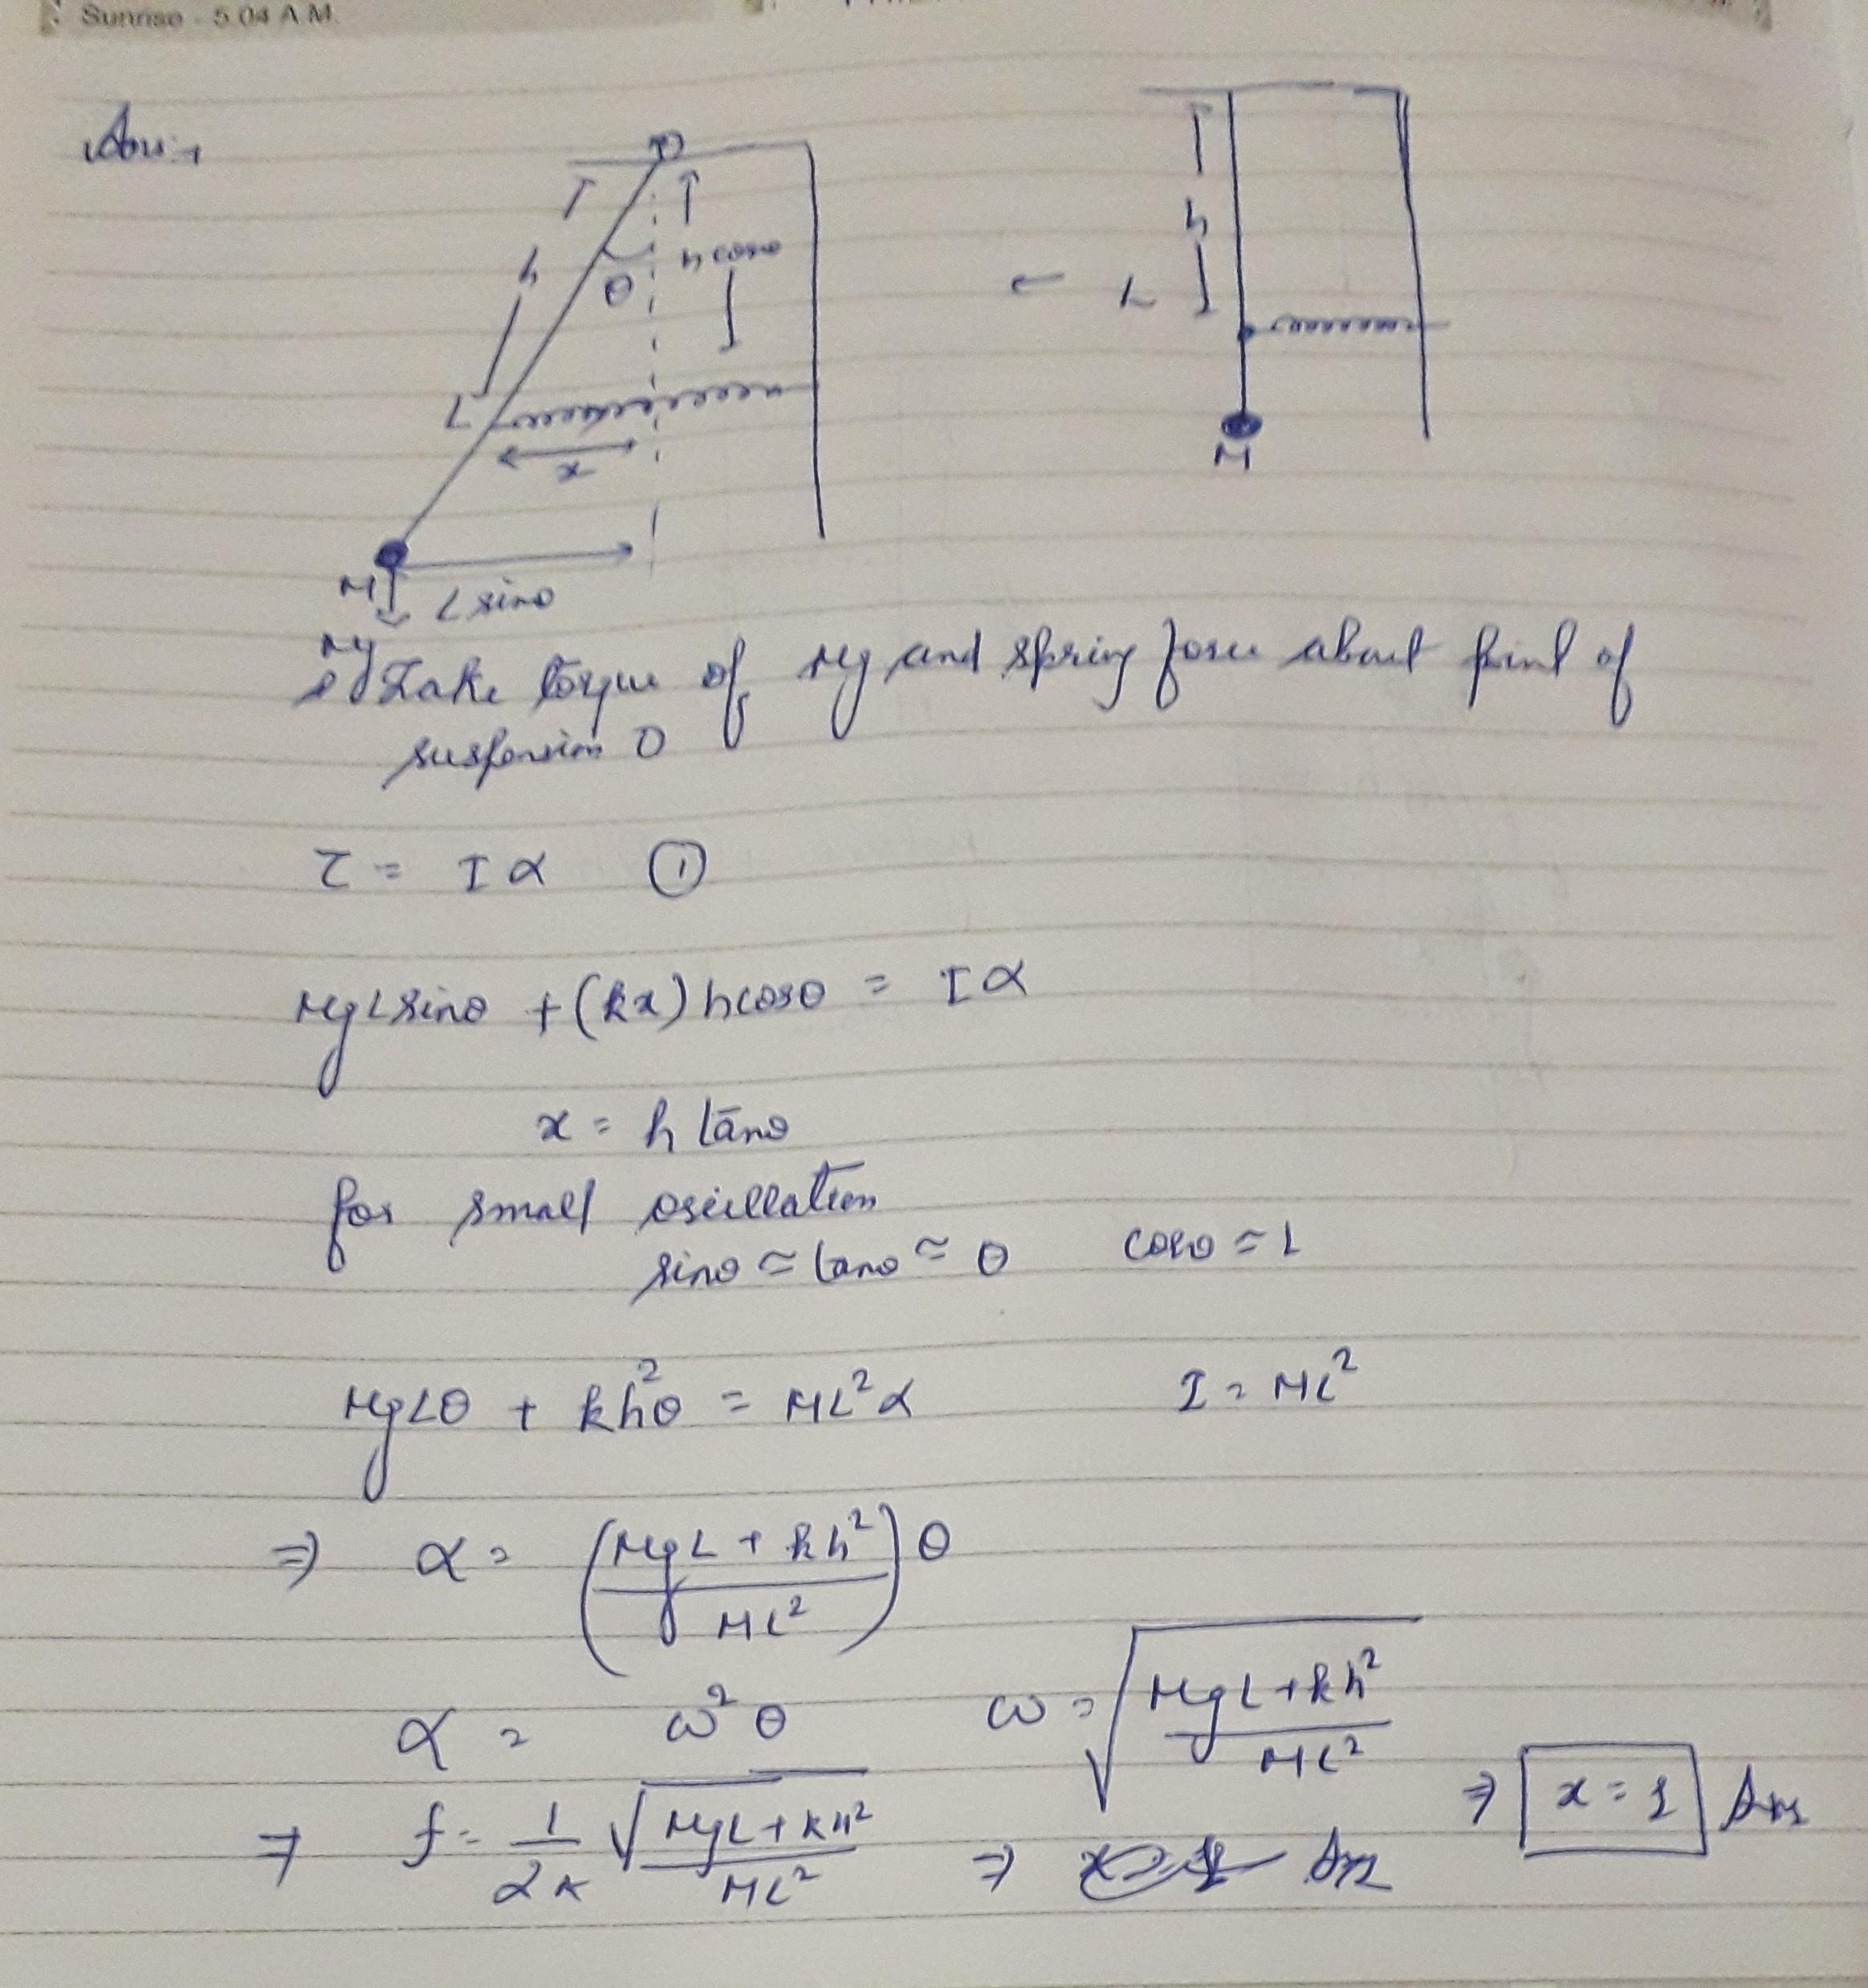 Sunrise - 5.04 A.M.
Ans:→
O
h
h cosθ
θ
L
x
M
L sinθ
Mg
h
L
M
Take torque of Mg and spring force about point of
suspension O
τ = Iα ①
MgLsinθ + (kx) hcosθ = Iα
x = h tanθ
for small oscillation
sinθ ≈ tanθ ≈ θ cosθ ≈ 1
MgLθ + kh²θ = ML²α I = ML²
⇒ α = (MgL + kh² / ML²) θ
α = ω²θ ω = √(MgL + kh² / ML²)
⇒ f = 1/2π √(MgL + kh² / ML²) ⇒ Ans ⇒ x = 1 Ans